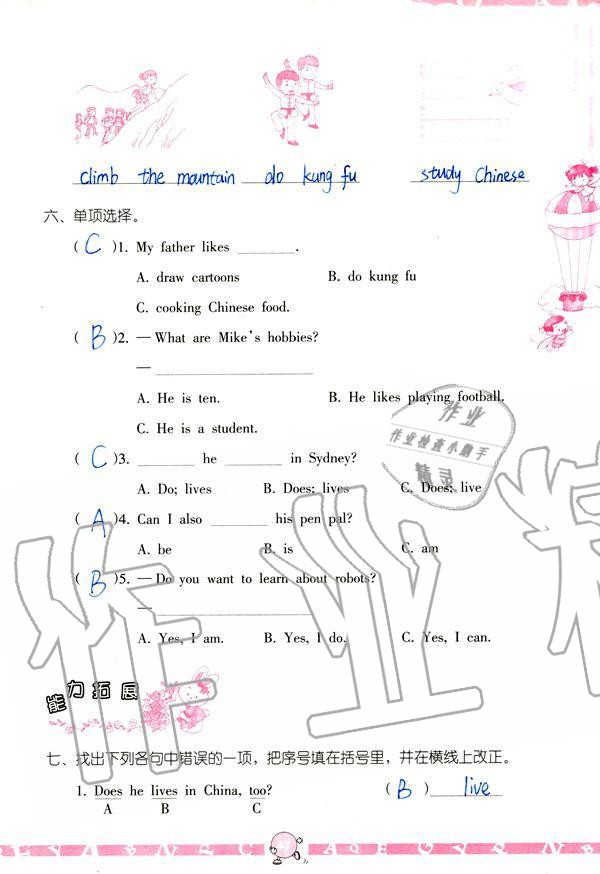 climb the mountain do kung fu study Chinese
六、单项选择。
( C )1. My father likes ________.
A. draw cartoons B. do kung fu
C. cooking Chinese food.
( B )2. — What are Mike's hobbies?
— ________________
A. He is ten. B. He likes playing football.
C. He is a student.
( C )3. ________ he ________ in Sydney?
A. Do; lives B. Does; lives C. Does; live
( A )4. Can I also ________ his pen pal?
A. be B. is C. am
( B )5. — Do you want to learn about robots?
— ________________
A. Yes, I am. B. Yes, I do. C. Yes, I can.
能力拓展
七、找出下列各句中错误的一项，把序号填在括号里，并在横线上改正。
1. Does he lives in China, too? ( B ) live
A B C
作业
作业检查小帮手
精灵
作业